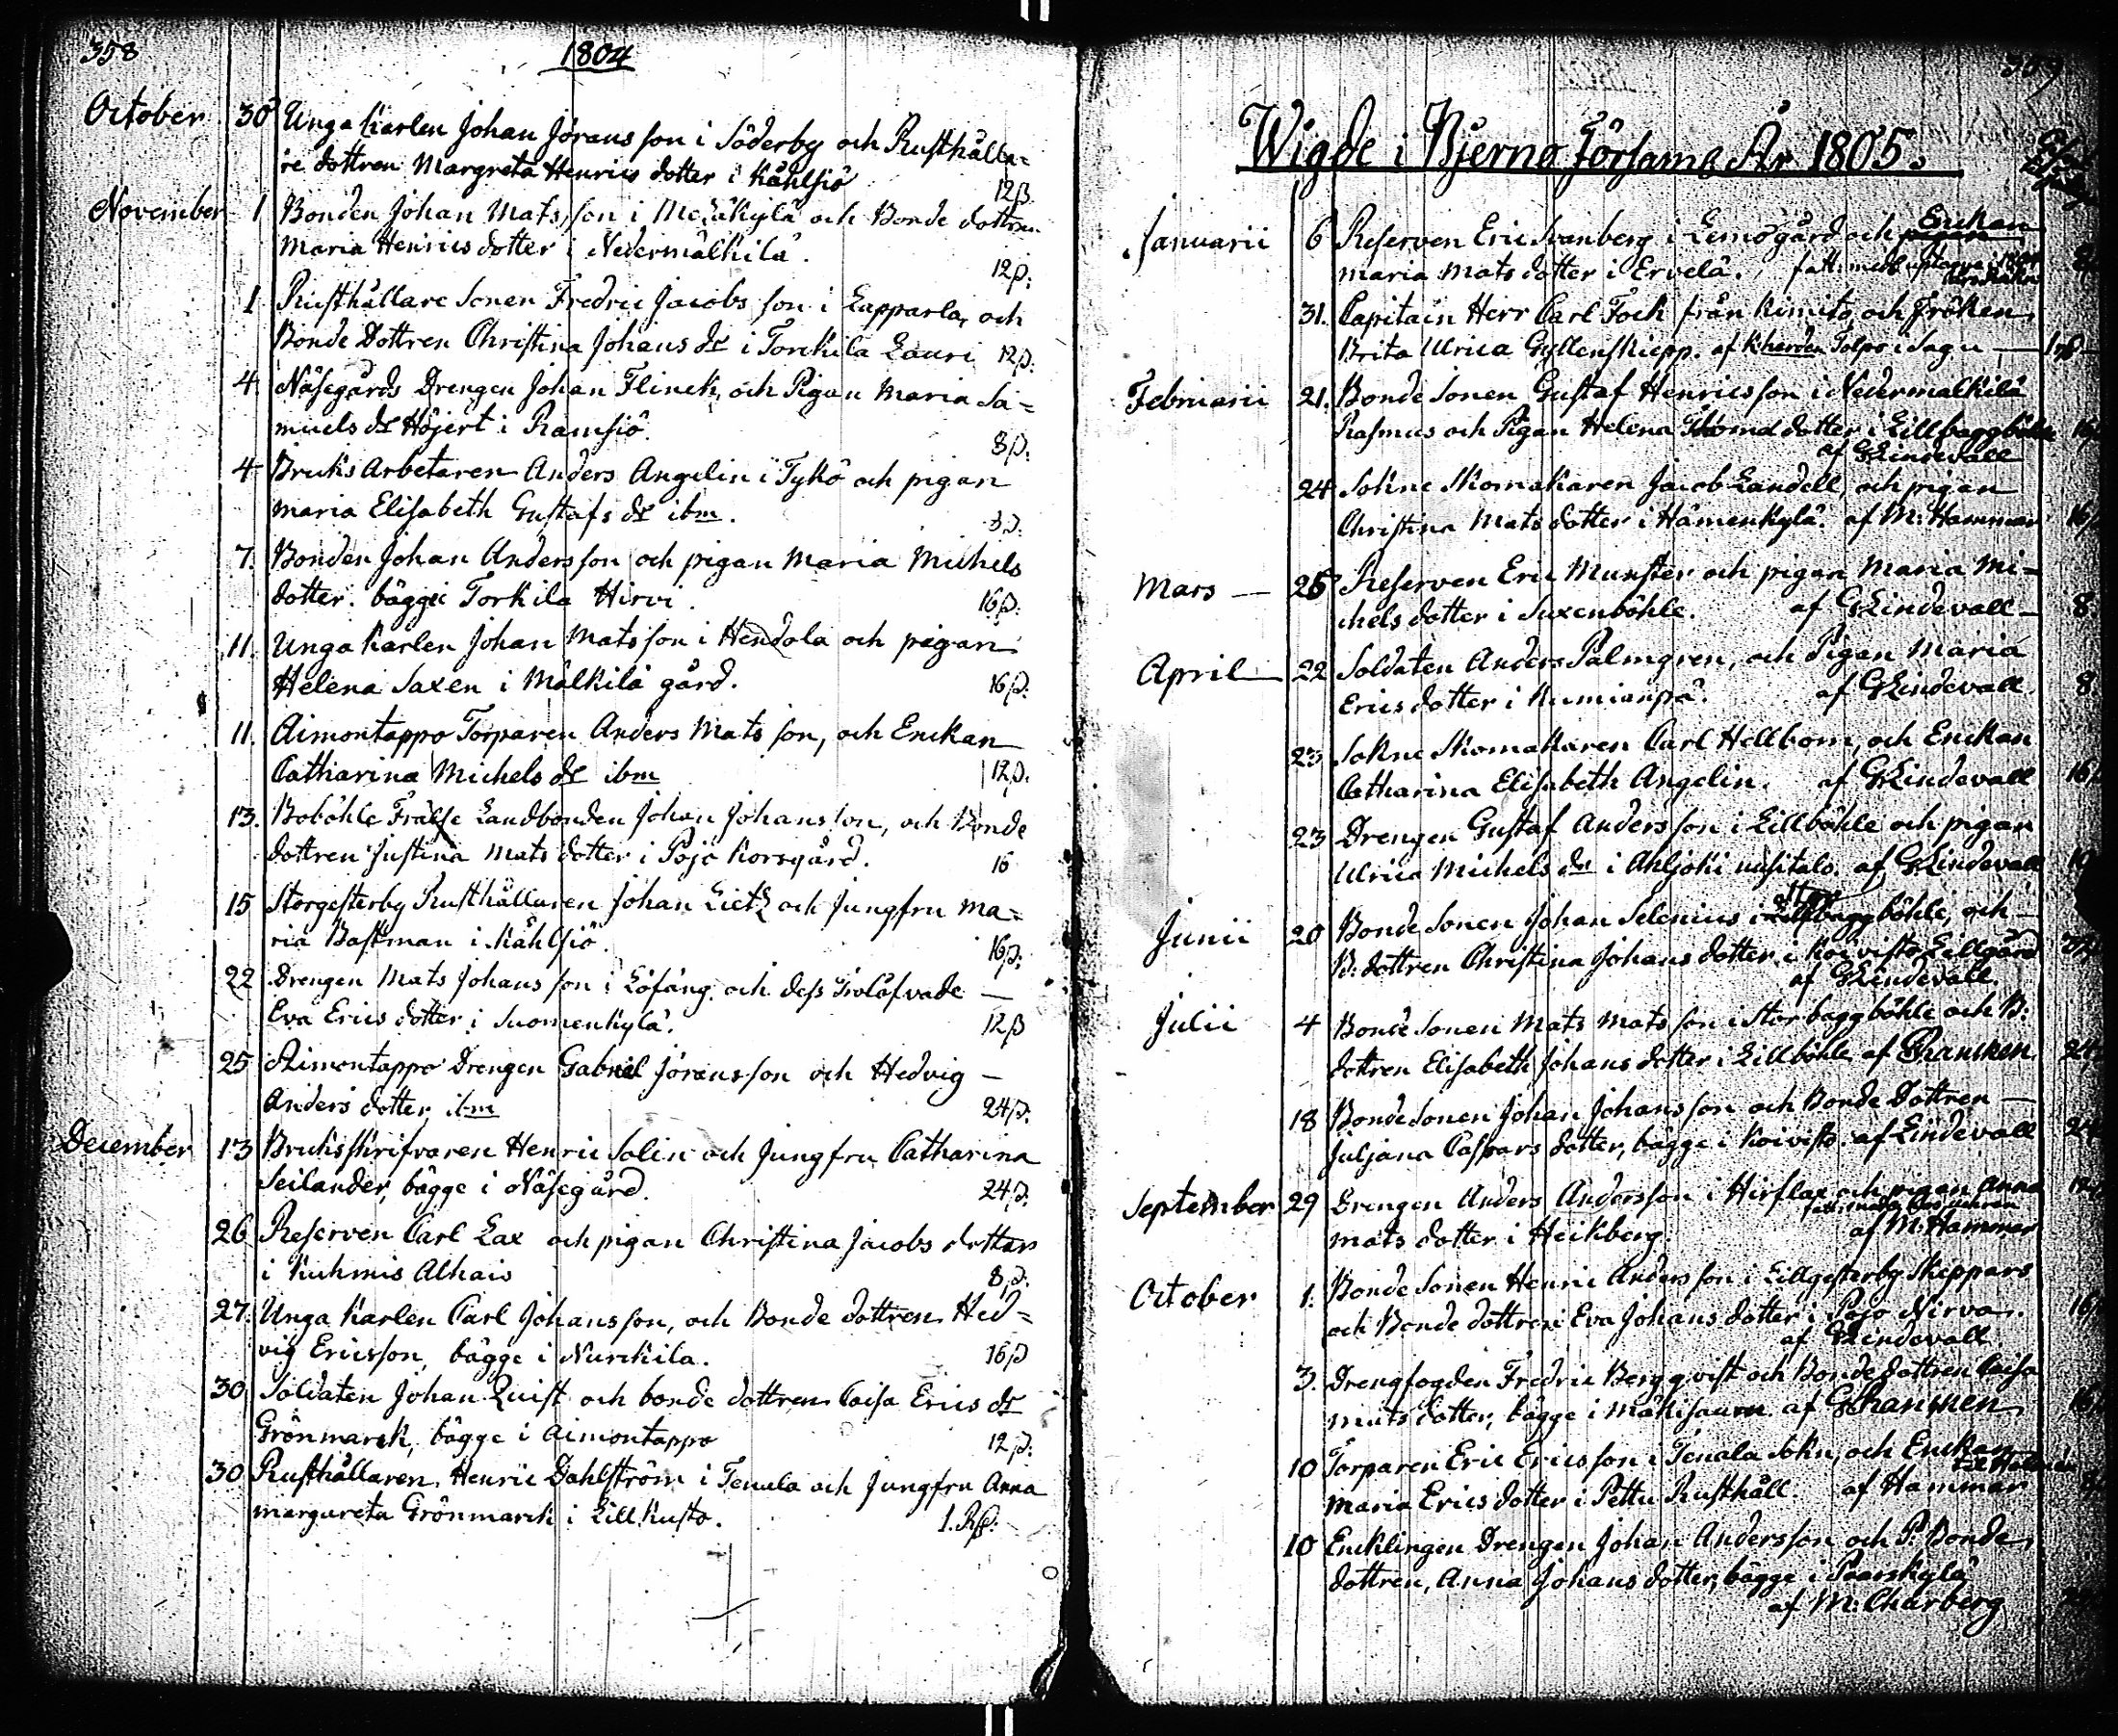 358
1804
October 30 Unga Karlen Johan Jöransson i Söderby och Rusthålla=
re dottren Margreta Henrics dotter i Kåhlsiö 12ß
November 1 Bonden Johan Matsson i Mekäkylä och Bonde dottren
Maria Henrics dotter i Nedermälkilä. 12ß:
1 Rusthållare Sonen Fredric Jacobs son i Lapparla, och
Bonde Dottren Christina Johans dr i Torkila Lauri 12ß:
4. Näsegårds Drengen Johan Flinck, och Pigan Maria Sa=
muels dr Höjert i Ramsiö. 8ß:
4 Bruks Arbetaren Anders Angelin i Tykö och pigan
Maria Elisabeth Gustafs dr ibm. 8ß:
7. Bonden Johan Andersson och pigan Maria Michels
dotter. bägge i Torkila Hirvi. 16ß:
11. Unga Karlen Johan Matsson i Hendola och pigan
Helena Saxen i Mälkilä gård. 16ß:
11. Aimontappo Torparen Anders Mats son, och Enckan
Catharina Michels dr ibm 12ß.
13. Boböhle Frälse Landbonden Johan Johansson, och Bonde
dottren Justina Mats dotter i Pojo Korsgård. 16
15 Storgesterby Rusthållaren Johan Lietz och Jungfru Ma=
ria Bastman i Kåhlsiö. 16ß:
22 Drengen Mats Johans son i Löfång. och dess Trolåfvade —
Eva Erics dotter i Suomenkylä. 12ß
25 Aimontappo Drengen Gabriel Jöransson och Hedvig —
Anders dotter ibm 24ß:
December 13 Bruksskrifvaren Henric Solin och Jungfru Catharina
Seilander, bägge i Näsegård. 24ß.
26 Reserven Carl Lax och pigan Christina Jacobs dotter
i Kuhmis Alhais 8ß.
27. Unga Karlen Carl Johansson, och Bonde dottren Hed=
vig Ericsson, bägge i Nurckila. 16ß
30 Soldaten Johan Quist och bonde dottren Caisa Erics dr
Grönmarck, bägge i Aimontappo 12ß:
30 Rusthållaren Henric Dahlström i Tenala och Jungfru Anna
Margareta Grönmarck i Lill Kusto. 1. Rß:
359
Wigde i Bjerno Församl År 1805.
Januarii 6 Reserven Eric Svanberg i Lemögård och Enckan
Maria Mats dotter i Ervelä.
31. Capitain Herr Carl Fock från Kimito och Fröken
Brita Ulrica Gyllenskepp. af Kherden Tolpo i Sagu —
Februarii 21. Bonde Sonen Gustaf Henricsson i Nedermalkilä
Rasmus och Pigan Helena Thomæ dotter i Lillbaggböhle 16
af GLindevall
24 Sokne Skomakaren Jacob Landell, och pigan
Christina Mats dotter i Hämenkylä. af M: Hammar 16
Mars — 25 Reserven Eric Munster och pigan Maria Mi=
chels dotter i Suxenböhle. af GLindevall — 8
April — 22 Soldaten Anders Palmgren, och Pigan Maria
Erics dotter i Kumianpä. af GLindevall. 8
23 Sokne Skomakaren Carl Hellbom, och Enckan
Catharina Elisabeth Angelin. af GLindevall 16
23 Drengen Gustaf Andersson i Lillböhle och pigan
Ulrica Michels dr i Ahljoki uusitalo. af GLindevall
Junii 20 Bonde Sonen Johan Selenius i Stor baggböhle, och —
B: dottren Christina Johans dotter i Koivisto Lillgård
af GLindevall.
Julii 4 Bonde Sonen Mats Mats son i Stor baggböhle och B:
dottren Elisabeth Johans dotter i Lillböhle af GRancken 24
18 Bonde Sonen Johan Johansson och Bonde Dottren —
Juljana Caspars dotter, bägge i Koivisto. af Lindevall 24
September 29 Drengen Anders Andersson i Hirslax och pigan Anna
Mats dotter i Heickberg. af M: Hammar
October 1. Bonde Sonen Henric Anders son i Lillgesterby Skeppars
och Bonde dottren Eva Johans dotter i Pojo Nirva. 16
af GLindevall
3. Drengfogden Fredric Bergqvist och Bonde dottren Caisa
Mats dotter, bägge i Mäkisauru. af GRancken 16
10 Torparen Eric Ericsson i Tenala Sokn, och Enckan
Maria Erics dotter i Pettu Rusthåll. af Hammar
10 Encklingen Drengen Johan Andersson och P. Bonde
dottren, Anna Johans dotter, bägge i Paarskylä
af M: Charberg